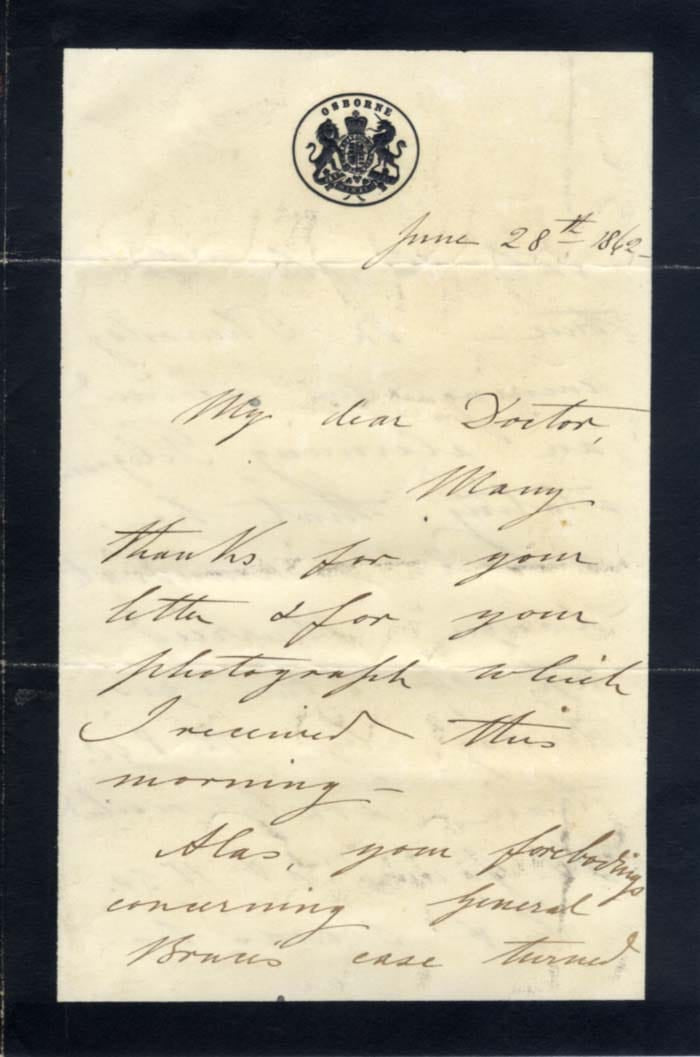 OSBORNE
June 28th 1862
My dear Doctor,
Many
thanks for your
letter & for your
photograph which
I received this
morning –
Alas, your forebodings
concerning General
Bruce's case turned